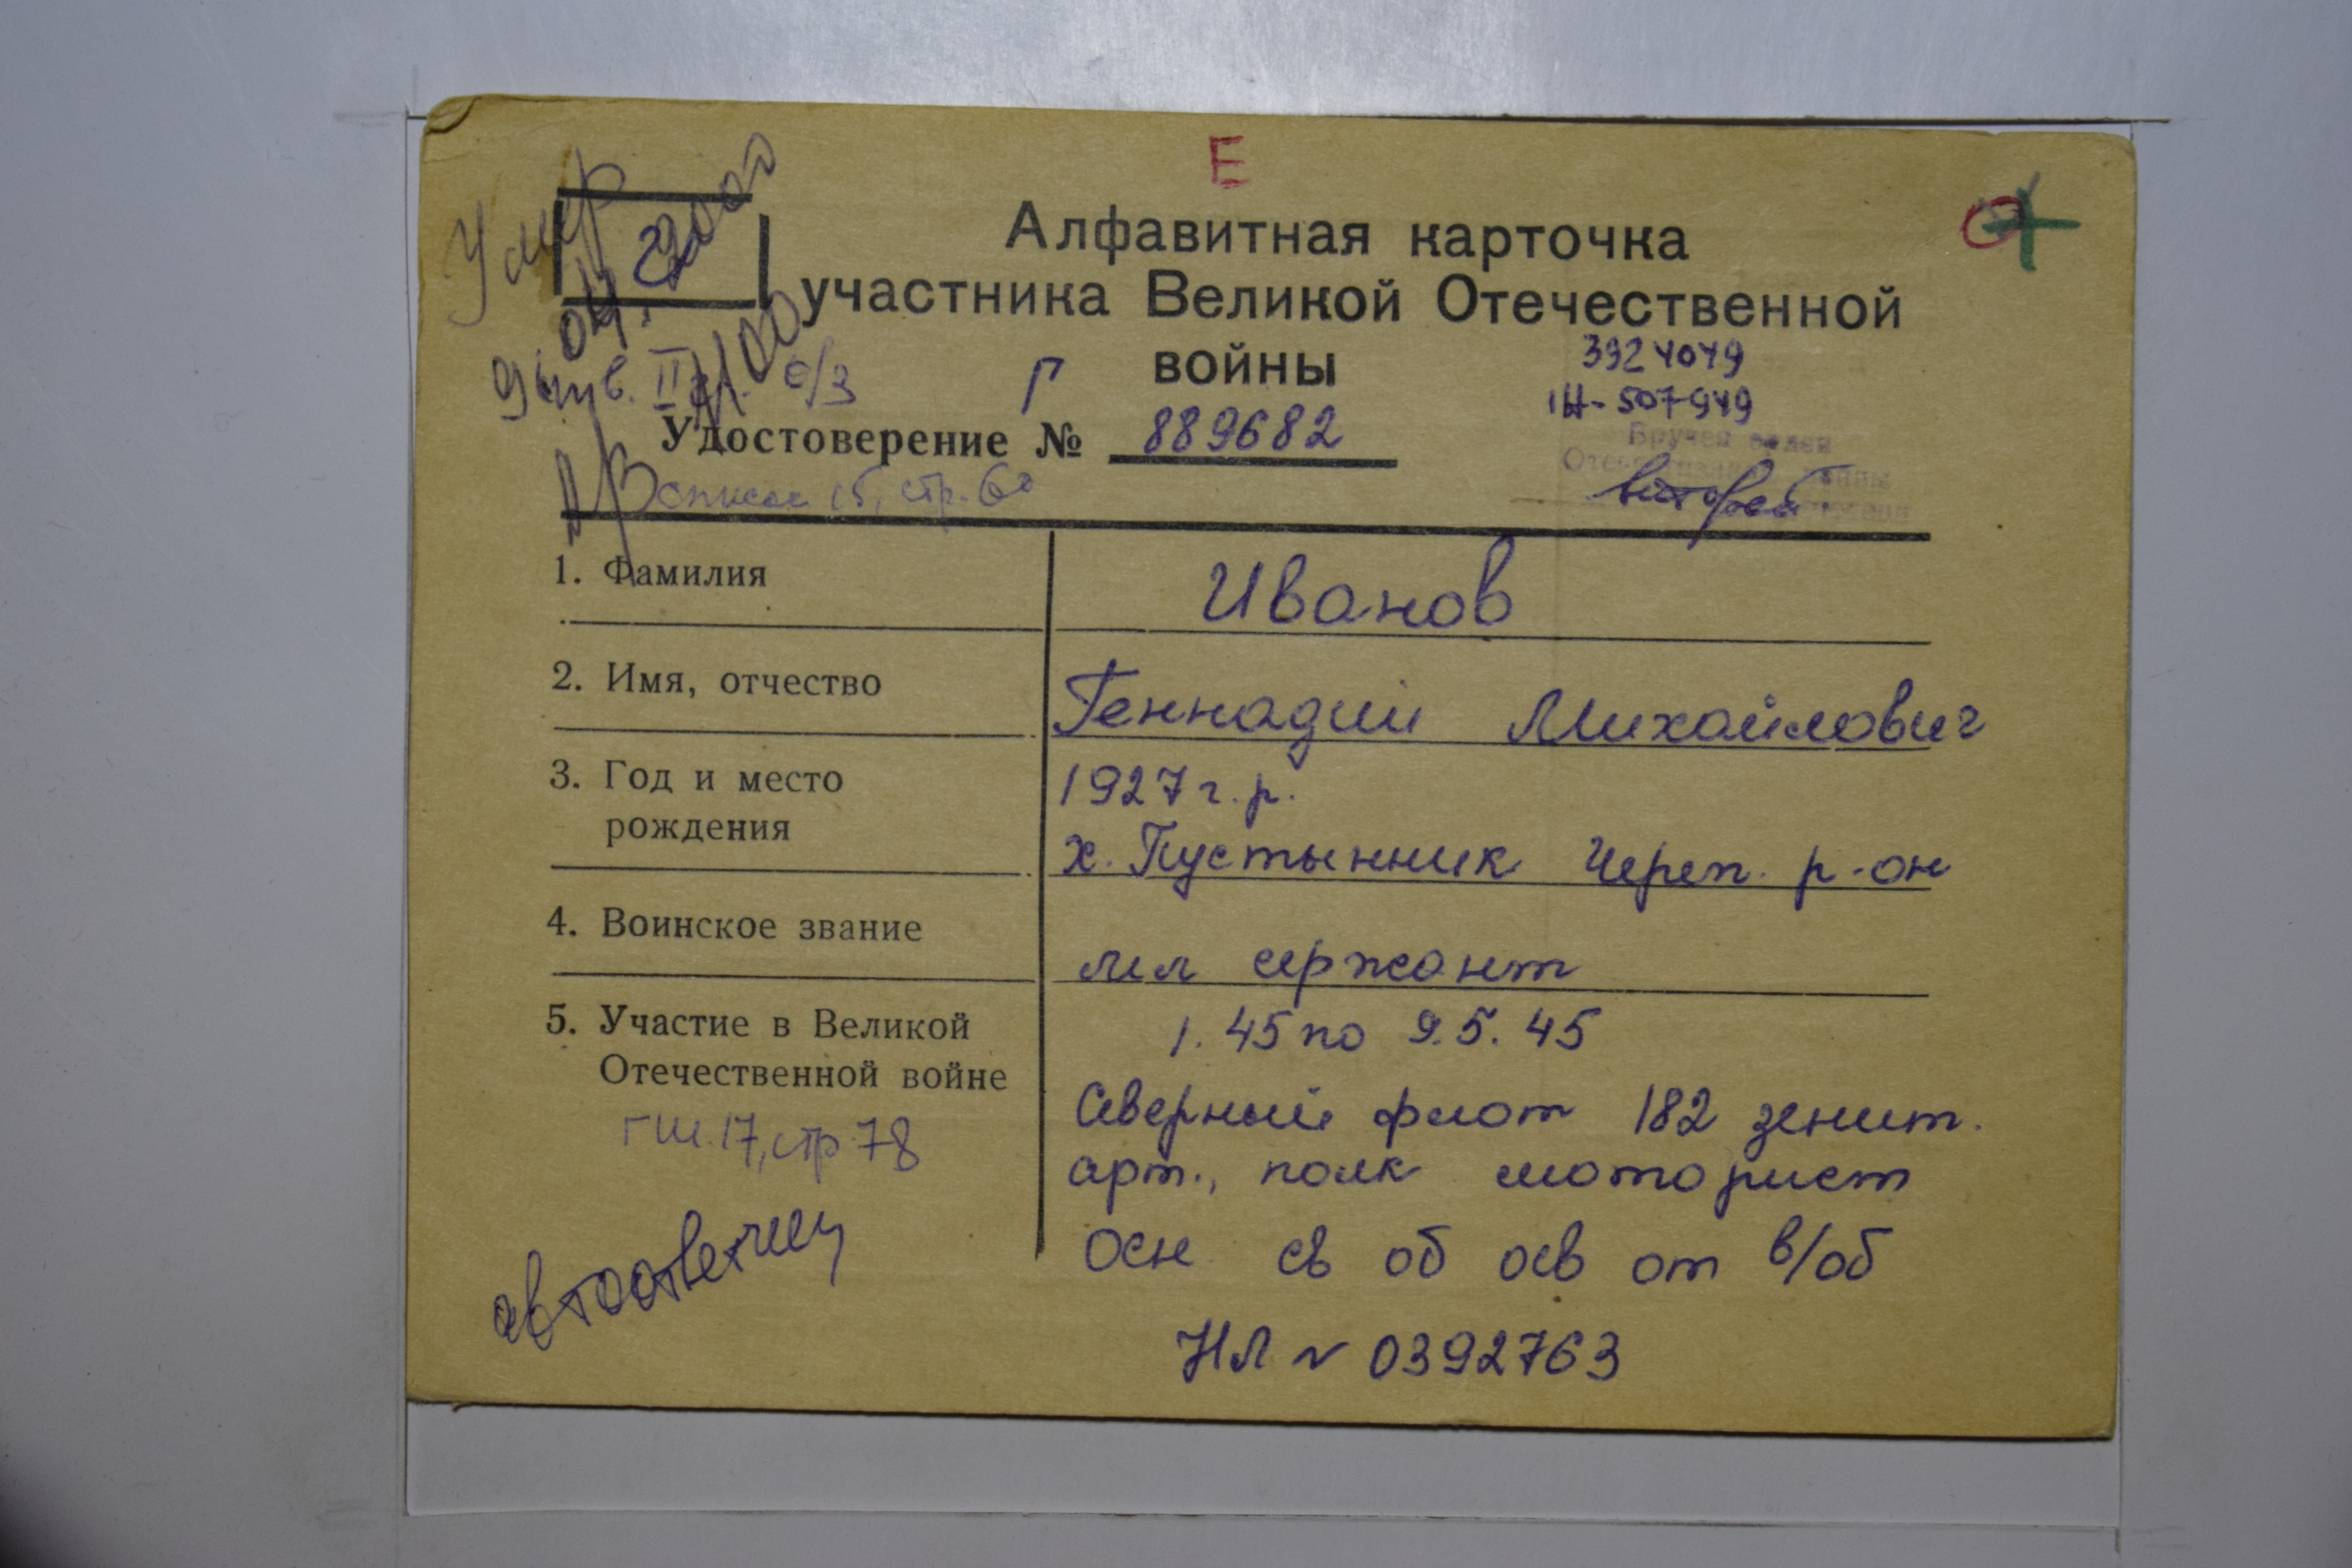 Е
Умер
2
Алфавитная карточка
участника Великой Отечественной
войны
Г
3924049
Удостоверение № 889682
Вручен орден
второй
список 15, стр. 60
1. Фамилия Иванов
2. Имя, отчество Геннадий Михайлович
3. Год и место рождения 1927 г. р.
х. Пустынник Череп. р-он
4. Воинское звание мл сержант
5. Участие в Великой Отечественной войне 1. 45 по 9.5. 45
Северный флот 182 зенит.
арт., полк моторист
ГШ. 17, стр 78
Осн св об осв от в/об
автоответчиц
НЛ № 0392763